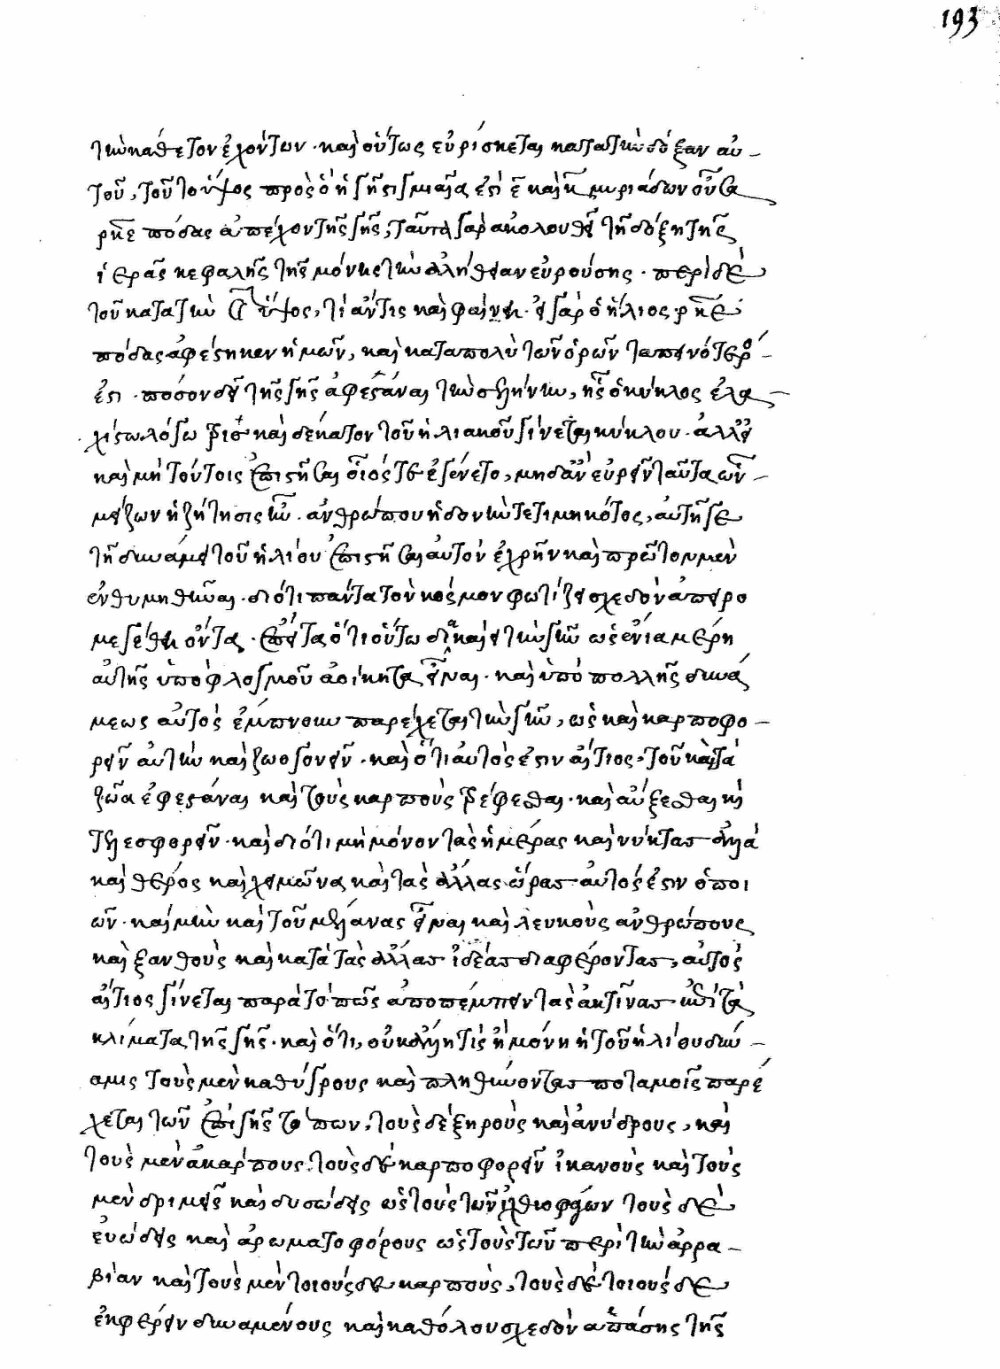 193
τὴν κάθετον ἐχόντων· καὶ οὕτως εὑρίσκεται κατὰ τὴν δόξαν αὐ-
τοῦ, τοῦ το ὕψος πρὸς ὃ ἡ γῆ στιγμιαία ἐστὶ καὶ μυριάδων οὖσα
ρκε πόδας ἀπέχον τῆς γῆς, ταῦτα γὰρ ἀκολουθεῖ τῇ δόξῃ τῆς
ἱερᾶς κεφαλῆς τῆς μόνης τὴν ἀλήθειαν εὑρούσης· περὶ δὲ
τοῦ κατὰ τὴν ὕψος, τί ἄν τις καὶ φαίη· εἰ γὰρ ὁ ἥλιος ρκε
πόδας ἀφέστηκεν ἡμῶν, καὶ κατὰ πολὺ τῶν ὀρῶν ταπεινότερό-
ἐστι· πόσον δεῖ τῆς γῆς ἀφεστάναι τὴν σελήνην, ἧς ὁ κύκλος ἐλα-
χίστῳ λόγῳ καὶ δέκατον τοῦ ἡλιακοῦ γίνεται κύκλου· ἀλλ' εἰ
καὶ μὴ τούτοις ἐπιστῆσαι οἷός τε ἐγένετο, μηδ' ἂν εὑρεῖν ταῦτα ὧν-
μείζων ἡ ζήτησις ἦν· ἀνθρώπου ἡδονὴν τετιμηκότος, αὐτῇ γε
τῇ δυνάμει τοῦ ἡλίου ἐπιστῆσαι αὐτὸν ἐχρῆν καὶ πρῶτον μὲν
ἐνθυμηθῆναι· διότι πάντα τὸν κόσμον φωτίζει σχεδὸν ἀπειρο
μεγέθη ὄντα· ἔπειτα ὅτι οὕτω διακαίει τὴν γῆν ὡς ἔνια μέρη
αὐτῆς ὑπὸ φλογμοῦ ἀοίκητα εἶναι· καὶ ὑπὸ πολλῆς δυνά
μεως αὐτὸς ἔμπνουν παρέχεται τὴν γῆν, ὡς καὶ καρποφο-
ρεῖν αὐτὴν καὶ ζωογονεῖν· καὶ ὅτι αὐτός ἐστιν αἴτιος· τοῦ καὶ τὰ
ζῶα ἐφεστάναι καὶ τοὺς καρποὺς τρέφεσθαι· καὶ αὔξεσθαι καὶ
τελεσφορεῖν· καὶ διότι μὴ μόνον τὰς ἡμέρας καὶ νύκτας ἀλλὰ
καὶ θέρος καὶ χειμῶνα καὶ τὰς ἄλλας ὥρας αὐτός ἐστιν ὁ ποι
ῶν· καὶ μὴν καὶ τοῦ μέλανας εἶναι καὶ λευκοὺς ἀνθρώπους
καὶ ξανθοὺς καὶ κατὰ τὰς ἄλλας ἰδέας διαφέροντας, αὐτὸς
αἴτιος γίνεται παρὰ τὸ πῶς ἀποπέμπειν τὰς ἀκτῖνας ἐπὶ τὰ
κλίματα τῆς γῆς· καὶ ὅτι, οὐκ ἄλλη τὶς ἢ μόνη ἡ τοῦ ἡλίου δύν-
αμις τοὺς μὲν καθύγρους καὶ πληθύοντας ποταμοῖς παρέ
χεται τῶν ἐπὶ γῆς τόπων, τοὺς δὲ ξηροὺς καὶ ἀνύδρους, καὶ
τοὺς μὲν ἀκάρπους, τοὺς δὲ καρποφορεῖν ἱκανοὺς καὶ τοὺς
μὲν δριμεῖς καὶ δυσώδεις ὡς τοὺς τῶν ἰχθυοφάγων τοὺς δὲ
εὐώδεις καὶ ἀρωματοφόρους ὡς τοὺς τῶν περὶ τὴν ἀρρα-
βίαν καὶ τοὺς μὲν τοιούσδε καρποὺς, τοὺς δὲ τοιούσδε
ἐκφέρειν δυναμένους καὶ καθόλου σχεδὸν ἁπάσης τῆς